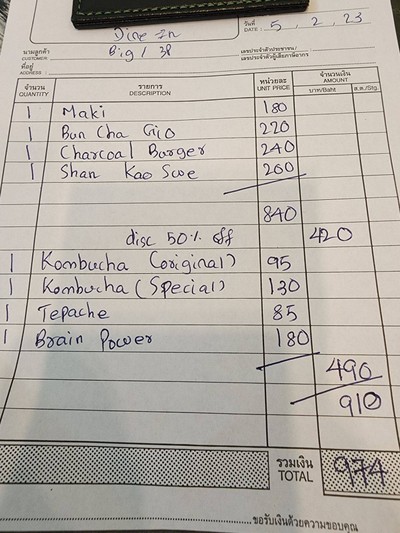 Dine In
วันที่ DATE : 5, 2, 23
นามลูกค้า CUSTOMER Big / 3P
เลขประจำตัวประชาชน/
เลขประจำตัวผู้เสียภาษีอากร
ที่อยู่ ADDRESS :
จำนวน QUANTITY รายการ DESCRIPTION หน่วยละ UNIT PRICE จำนวนเงิน AMOUNT
บาท/Baht ส.ต./Stg.
1 Maki 180
1 Bun Cha Gio 220
1 Charcoal Burger 240
1 Shan Kao Swe 200
840
disc 50% off 420
1 Kombucha (original) 95
1 Kombucha (Special) 130
1 Tepache 85
1 Brain Power 180
490
910
รวมเงิน TOTAL 974
ขอรับเงินด้วยความขอบคุณ